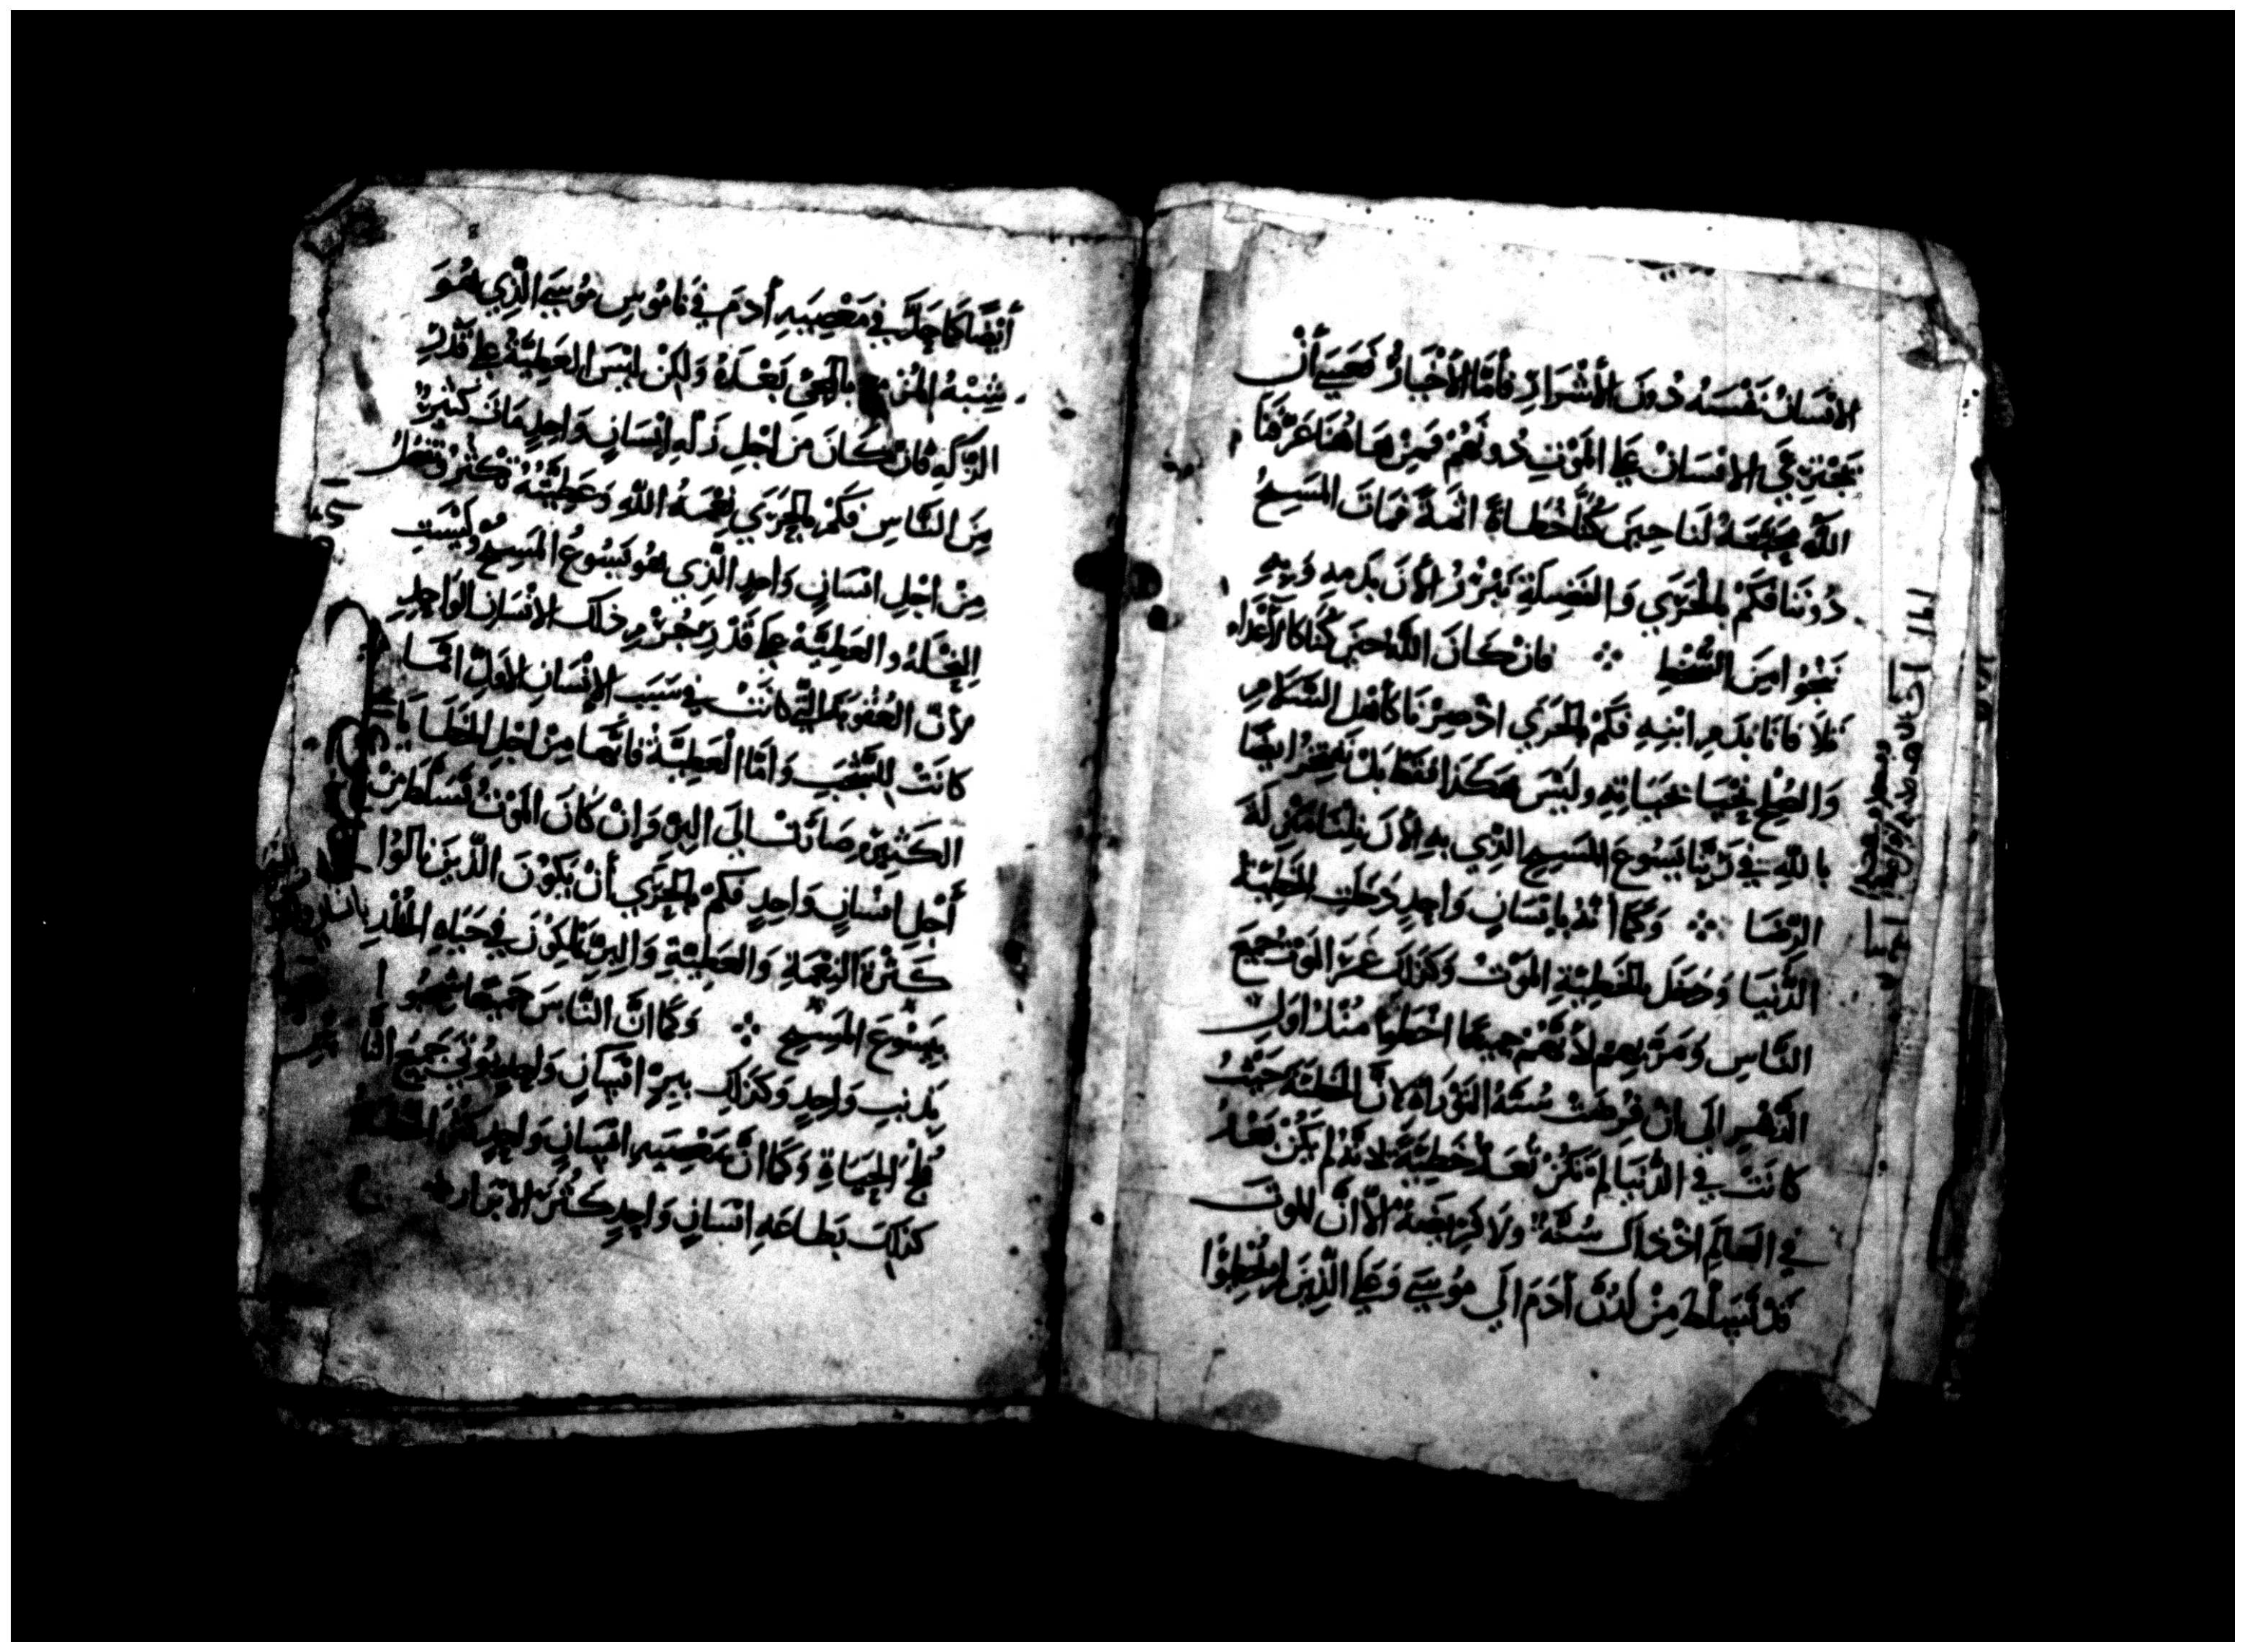 الانسَانُ نَفْسَهُ دُونَ الأَشْرَارِ فَأَمَّا الأَخْيَارُ فَعَسَى أَنْ
يَجْتَرِي الانْسَانُ عَلَى المَوْتِ دُونَهُمْ فَمِنْ هَاهُنَا عَرَّفَنَا
اللَّهُ مَحَبَّتَهُ لَنَا حِينَ كُنَّا خُطَاةً اثَمَةً فَمَاتَ المَسِيحُ
دُونَنَا فَكَمْ بِالْحَرَيِ وَالفَضِيلَةِ نَبْرُرُ الأَنَ بِدَمِهِ وَبِهِ
نَنْجُوا مِنَ السُّخْطِ ܀ فَانْ كَانَ اللَّهُ حِينَ كُنَّا كَالأَعْدَاءِ
تَلاَفَانَا بِدَمِ ابْنِهِ فَكَمْ بِالْحَرَي اذْ صِرْنَا كَأَهْلِ السَّلاَمِ
وَالصُّلْحِ نَحْيَا بِحَيَاتِهِ وَلَيْسَ هَكَذَا فَقَطْ بَلْ نَفْتَخِرُ ايضًا
بِاللَّهِ فِي رَبِّنَا يَسُوعَ المَسِيحِ الَّذِي بِهِ الأَنَ نِلْنَا مَنْزِلَةَ
الرِّضَا ܀ وَكَمَا أَنَّهُ بِانْسَانٍ وَاحِدٍ دَخَلَتِ الخَطِيَّةُ
الدُّنْيَا وَدَخَلَ بِالخَطِيَّةِ المَوْتُ وَكَذَلِكَ عَمَّ المَوْتُ جَمِيعَ
النَّاسِ وَمَرَّ بِهِمْ لأَنَّهُمْ جَمِيعًا اخْطَوا مُنْذُ اوَلِ
الدَّهْرِ الَى انْ فُرِضَتْ سُنَّةُ التَوْرَاةِ لاَنَّ الخَطِيَّةَ حَيْثُ
كَانَتْ فِي الدُّنْيَا لَمْ تَكُنْ تُعَدُّ خَطِيَّةً لاَنَّهُ لَمْ يَكُنْ بَعْدُ
فِي العَالَمِ اذْ ذَاكَ سُنَّةٌ وَلاَ فَرِيضَةٌ الاَّ انَّ المَوتَ
قَدْ تَسَلَّطَ مِنْ لَدُنْ أدَمَ الَي مُوسَى وَعَلَى الَّذِينَ لَمْ يُخْطِيُوا
أَيْضًا كَمَا حَلَّ فِي مَعْصِيَةِ أَدَمَ فِي نَامُوسِ مُوسَى الَّذِي هُوَ
شِبْهُ المُزْمِعِ بِالْمَجِيِّ بَعْدَهُ وَلَكِنْ لَيْسَ العَطِيَّةُ عَلَى قَدْرِ
الزَّلَةِ فَانْ كَانَ مِنَ اجْلِ زَلَّةِ انْسَانٍ وَاحِدٍ مَاتَ كَثِيرٌ
مِنَ النَّاسِ فَكَمْ بِالْحَرَيِ نِعْمَةُ اللَّهِ وَعَطِيَّتُهُ تَكْثُرُ وَتَفْضُلُ
مِنْ اجْلِ انْسَانٍ وَاحِدٍ الَّذِي هُوَ يَسُوعُ المَسِيحُ وَلَيْسَتِ
النِّحْلَةُ وَالعَطِيَّةُ عَلَى قَدْرِ جُرْمِ ذلكَ الانْسَانِ الوَاحِدِ
لأَنَّ العُقُوبَةَ الَّتِي كَانَتْ فِي سَبَبِ الإِنْسَانِ الأَوَّلِ انَّمَا
كَانَتْ لِلشَّجْبِ وَامَّا الْعَطِيَّةُ فَانَّهَا مِنْ اجْلِ الخَطَايَا
الكَثِيرَةِ صَارَتْ الَى البِرِّ وَانْ كَانَ المَوْتُ تَسَلَّطَ مِنْ
أَجْلِ انْسَانٍ وَاحِدٍ فَكَمْ بِالْحَرَي أَنْ يَكُوْنَ الَّذِينَ نَالُوْا
كَثْرَةَ النِّعْمَةِ وَالعَطِيَّةِ وَالبِرِّ يَمْلِكُوْنَ فِي حَيَاةِ الخُلْدِ
بِيَسُوْعَ المَسِيْحِ ܀ وَكَمَا انَّ النَّاسَ جَمِيعًا شُجِبُوا
بِذَنْبِ وَاحِدٍ وَكَذَلِكَ بِبِرِّ انْسَانٍ وَاحِدٍ يُوْتَى جَمِيعُ النَّا
فَلَجَ الحَيَاةِ وَكَمَا انَّ بِمَعْصِيَةِ انْسَانٍ وَاحِدٍ كَثُرَ الخَطَاةُ
كَذَلِكَ بَطَاعَةِ انْسَانٍ وَاحِدٍ كَثُرَ الابْرَار